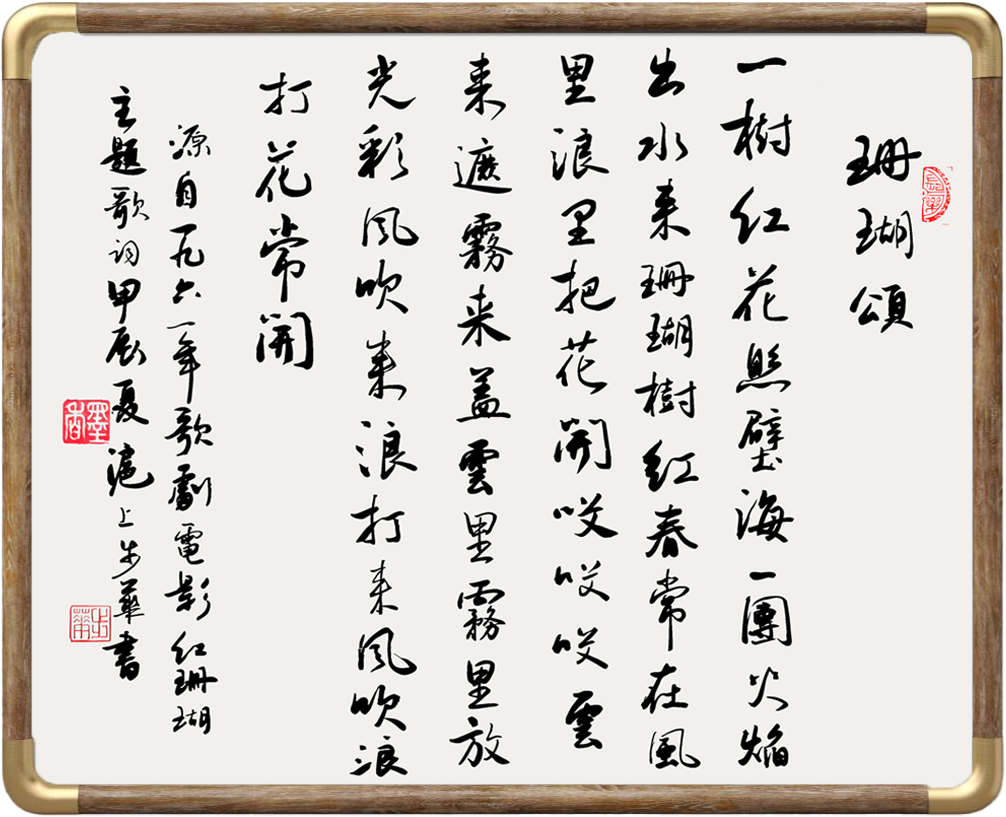 珊瑚頌
一樹紅花照壁海一團火焰
出水来珊瑚樹紅春常在風
里浪里把花開哎哎哎雲
来遮霧来盖雲里霧里放
光彩風吹来浪打来風吹浪
打花常開
源自一九六一年歌劇電影紅珊瑚
主題歌词甲辰夏滬上步華書
墨香